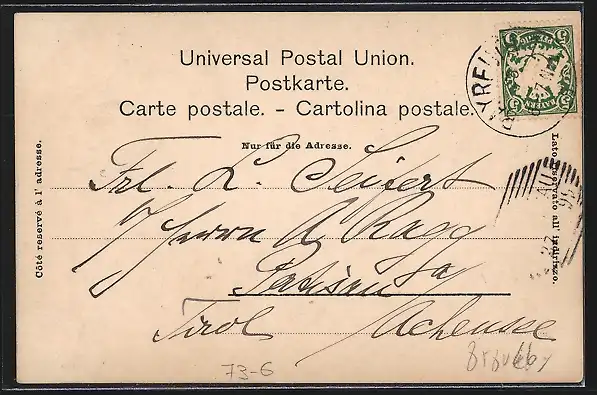 Universal Postal Union.
Postkarte.
Carte postale. - Cartolina postale.
Nur für die Adresse.
Côté reservé à l' adresse.
Lato riservato all' indirizzo.
5 5
BAYERN
BAYREUTH
27 AUG 99
Frl. L. Seifert
p/ Herrn A. Ragg
Pertisau
Tirol Achensee
73-6